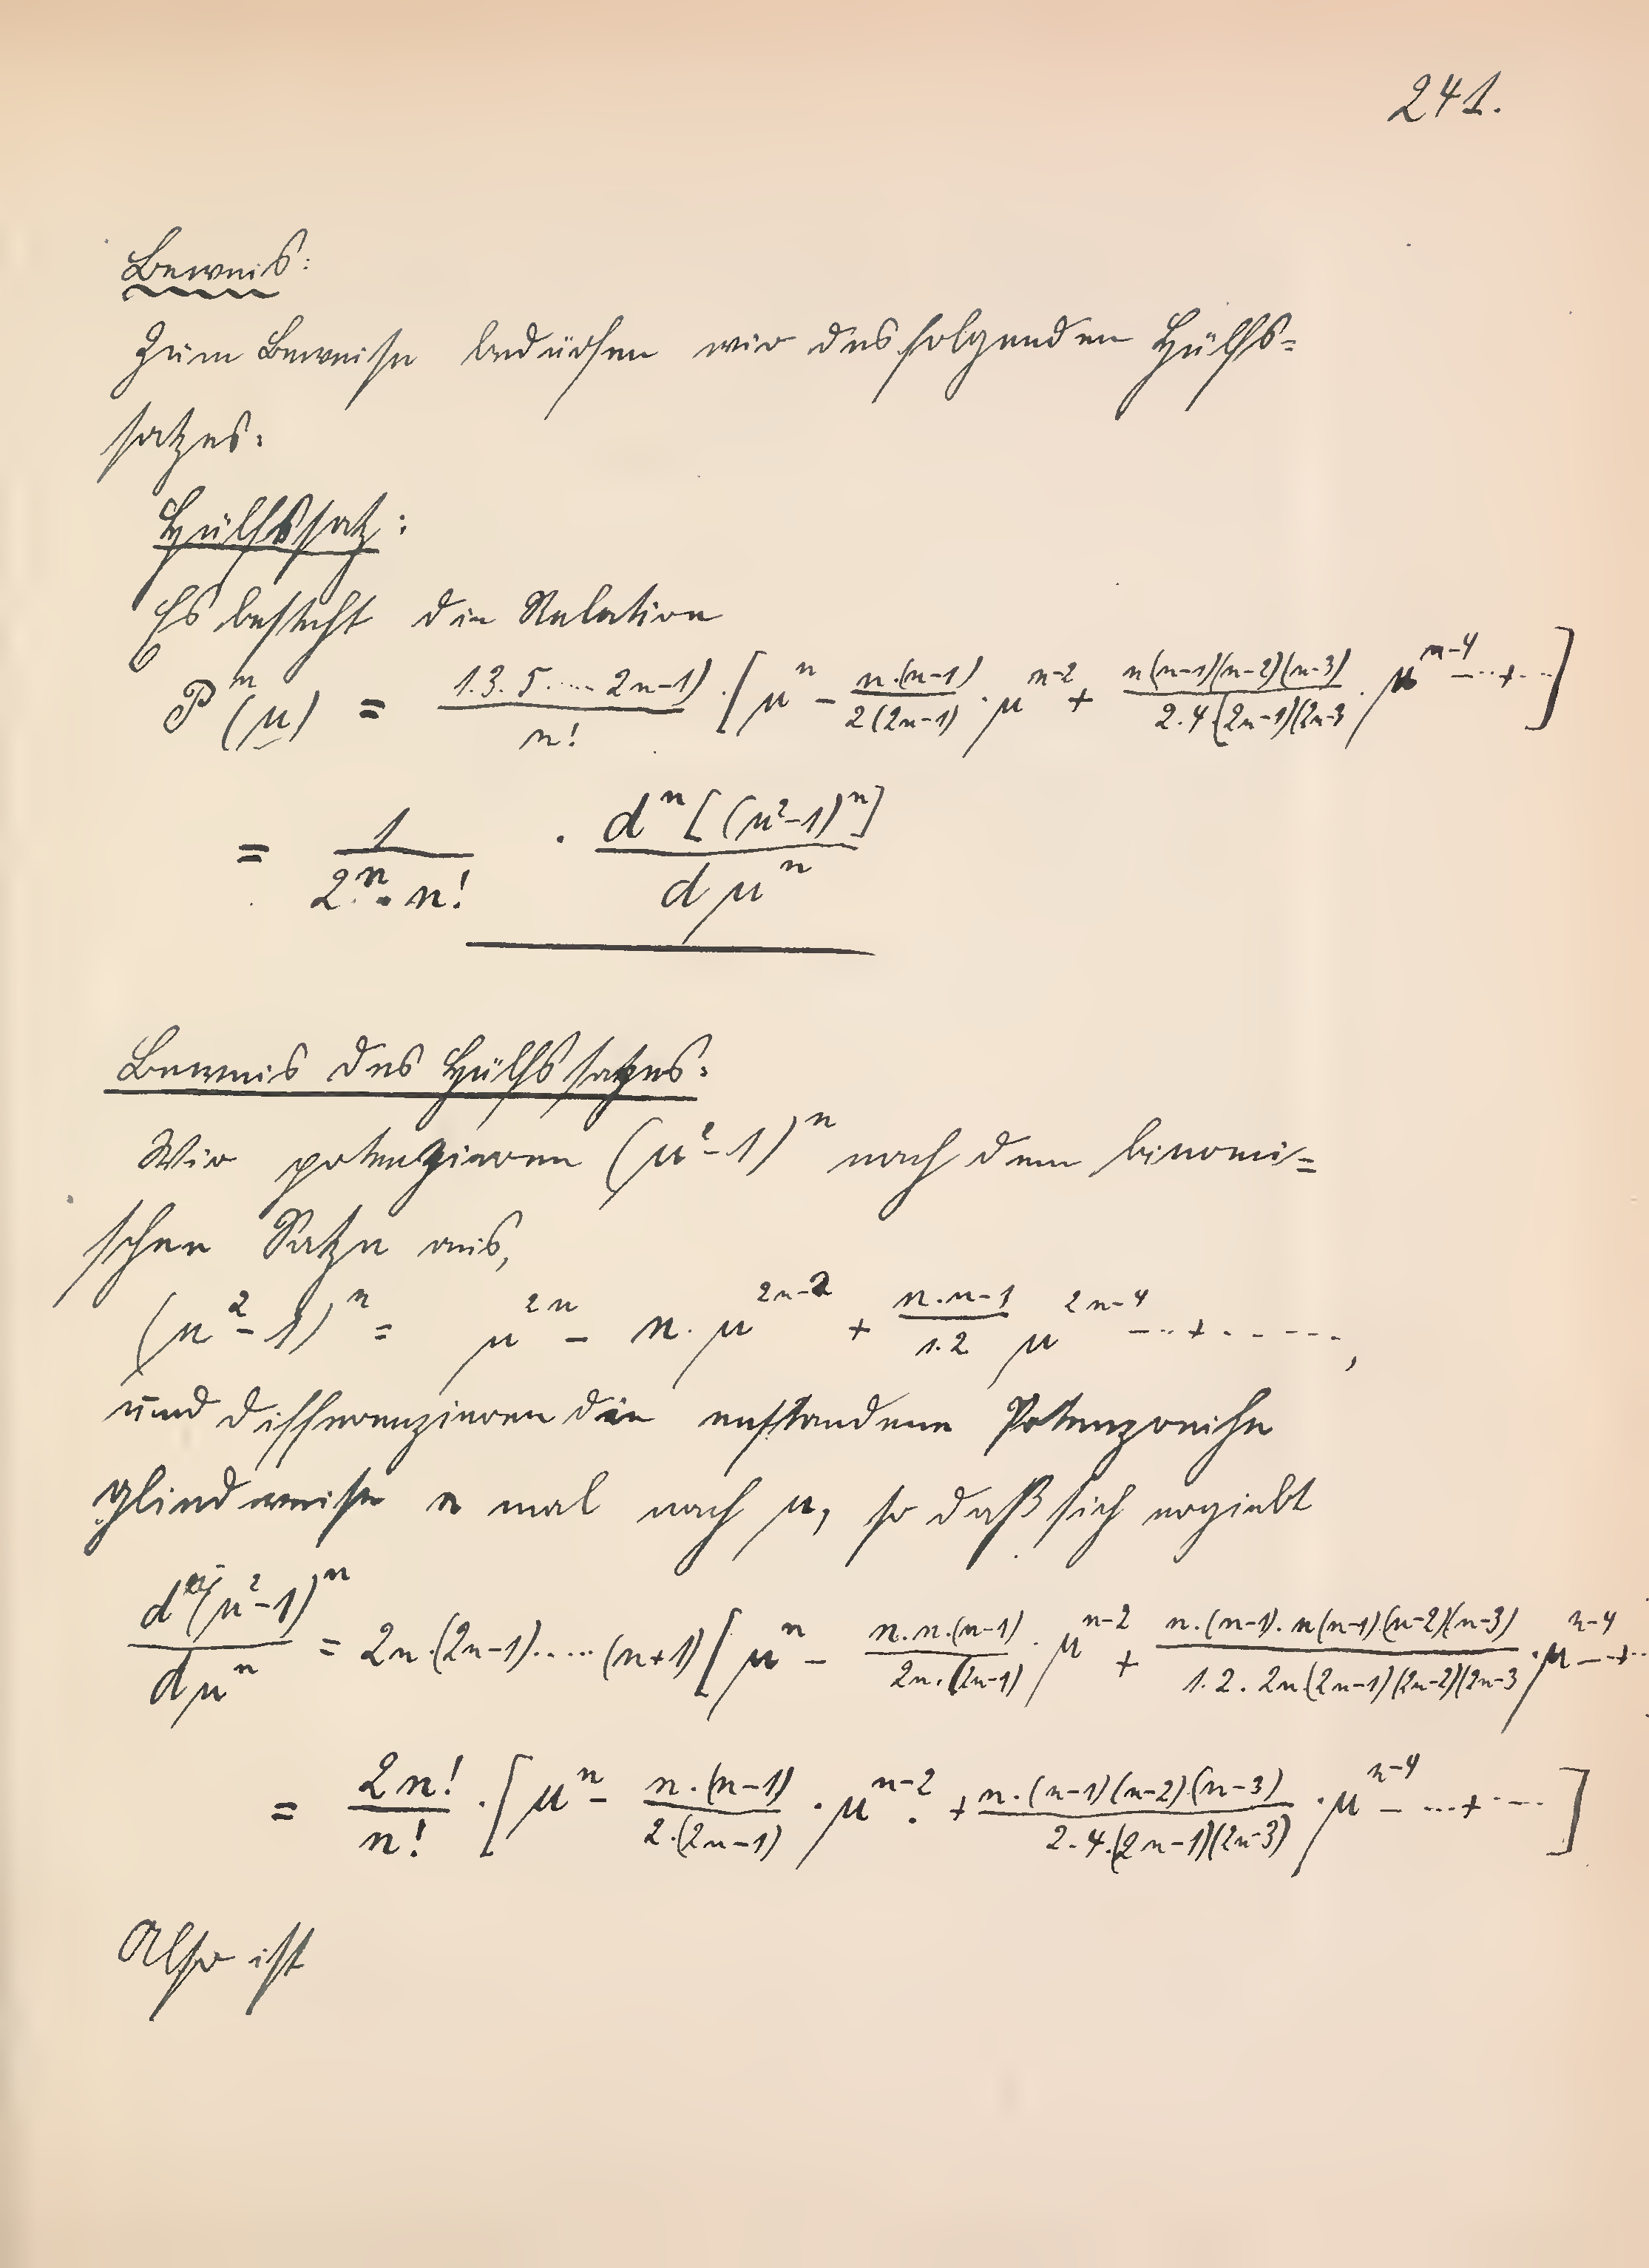 241.
Beweis:
Zum Beweise bedürfen wir des folgenden Hülfs=
satzes:
Hülfssatz:
Es besteht die Relation
P^n(μ) = \frac{1.3.5..... 2n-1)}{n!} · [μ^n - \frac{n.(n-1)}{2(2n-1)} · μ^{n-2} + \frac{n(n-1)(n-2)(n-3)}{2.4(2n-1)(2n-3} · μ^{n-4} - ··+···]
= \frac{1}{2^n · n!} · \frac{d^n[(μ^2-1)^n]}{dμ^n}
Beweis des Hülfssatzes:
Wir potenzieren (μ^2-1)^n nach dem binomi=
schen Satze aus,
(μ^2-1)^n = μ^{2n} - n. μ^{2n-2} + \frac{n.n-1}{1.2} μ^{2n-4} - ··+·····,
und differenzieren die entstandene Potenzreihe
gliedweise n mal nach μ, so daß sich ergiebt
\frac{d^n(μ^2-1)^n}{dμ^n} = 2n.(2n-1).....(n+1)[μ^n - \frac{n.n.(n-1)}{2n.(2n-1)} · μ^{n-2} + \frac{n.(n-1).n(n-1)(n-2)(n-3)}{1.2.2n(2n-1)(2n-2)(2n-3} · μ^{n-4} - ··+··
= \frac{2n!}{n!} · [μ^n - \frac{n.(n-1)}{2.(2n-1)} · μ^{n-2} + \frac{n.(n-1)(n-2)(n-3)}{2.4.(2n-1)(2n-3)} · μ^{n-4} - ···+···]
Also ist